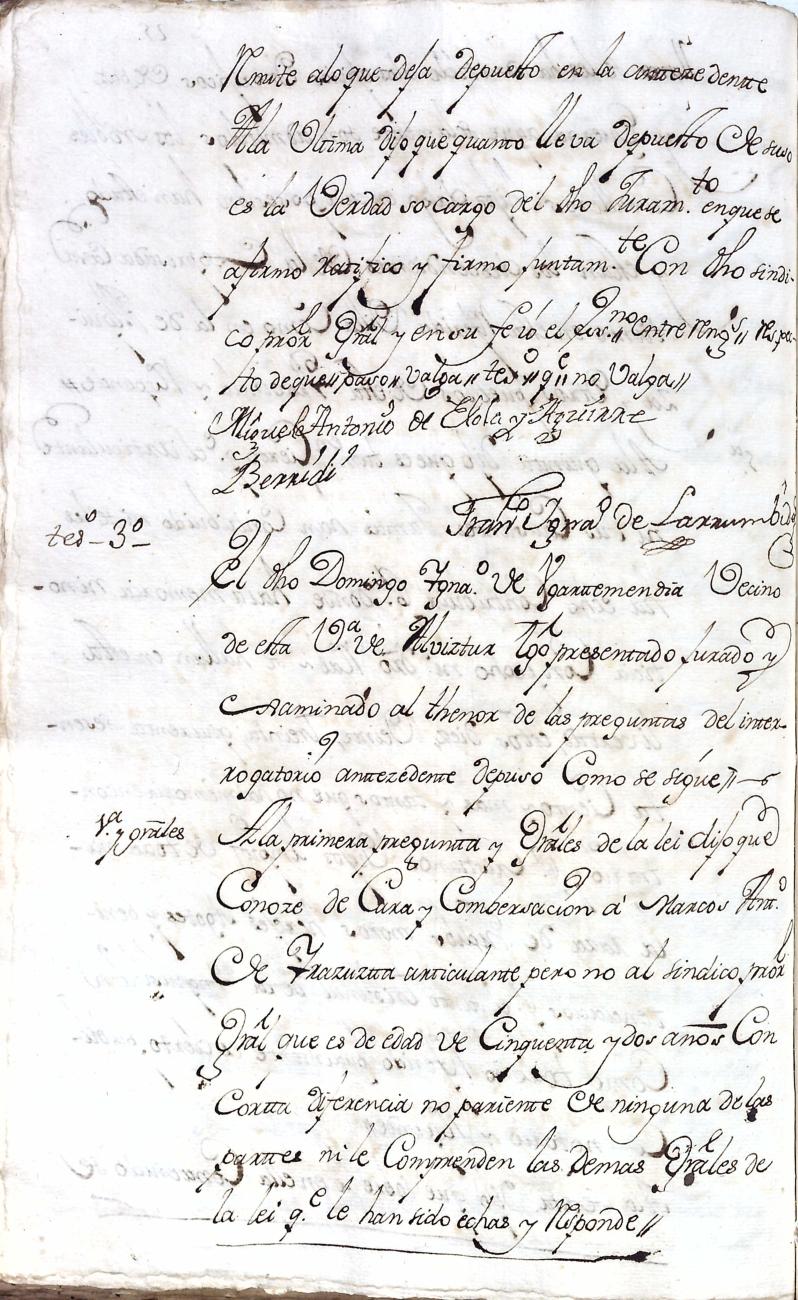 Rmite alo que deja depuesto en la anttezedentte
Ala Ultima dijo que quanto lleva depuesto de suso
es la Verdad so cargo del dho Juram.to en que se
afirmo Ratifico y firmo juntam.te Con dho sindi-
co pror Gral y en su fe io el ess.no // Entre reng.s // respec-
to de que // paso // valga // tes.o // q.e // no Valga //
Miguel Antonio de Elola y Aguirre
Berridi
Fran.co Igna.o de Larrumbide
tes.o – 3.o –
El dho Domingo Igna.o de Ugarttemendia Vecino
de esta V.a de Alviztur tgo presentado jurado y
examinado al thenor de las preguntas del inter-
rogatorio anttezedente depuso Como se sigue //
1.a y grales
A la primera pregunta y Grales de la lei dijo que
Conoze de Cara y Combersacion a Marcos Antt.o
de Irazuzta articulante pero no al sindico pror
Gral que es de edad de Cinquenta y dos años Con
Cortta diferencia no pariente de ninguna de las
parttes ni le Comprenden las Demas Grales de
la lei q.e le han sido echas y Responde //